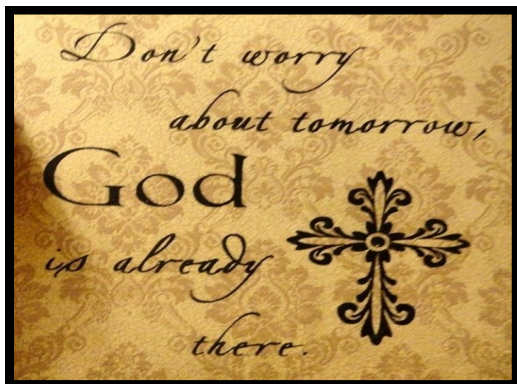 Don't worry
about tomorrow,
God
is already
there.